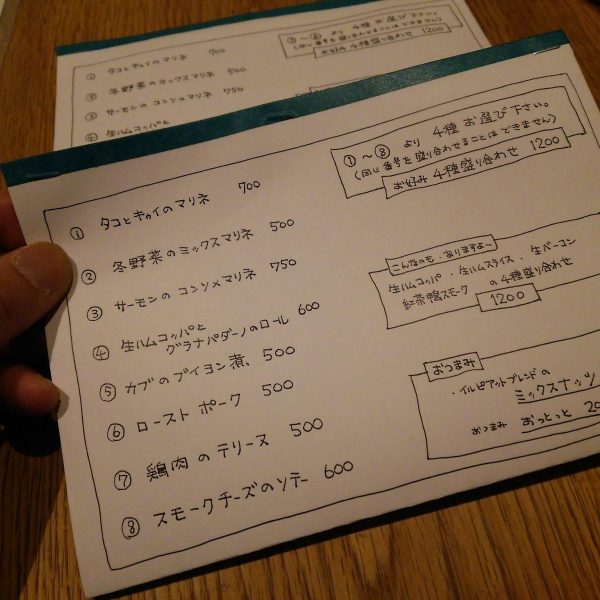 ① タコとキゥイのマリネ 700
② 冬野菜のミックスマリネ 500
③ サーモンの コンソメマリネ 750
④ 生ハムコッパと
①〜⑧ より 4種 お選び下さい。
(同じ番号を盛り合わせることはできません)
お好み 4種盛り合わせ 1200
① タコとキゥイのマリネ 700
② 冬野菜のミックスマリネ 500
③ サーモンの コンソメマリネ 750
④ 生ハムコッパと
グラナパダーノのロール 600
⑤ カブのブイヨン煮、 500
⑥ ロースト ポーク 500
⑦ 鶏肉のテリーヌ 500
⑧ スモークチーズのソテー 600
①〜⑧ より 4種 お選び下さい。
(同じ番号を盛り合わせることはできません)
お好み 4種盛り合わせ 1200
こんなのも、ありますよ〜
生ハムコッパ ・生ハムスライス ・生ベーコン
紅茶鴨スモーク の4種盛り合わせ
1200
おつまみ
・イルピアットブレンドの
ミックスナッツ
おつまみ おっとっと 20